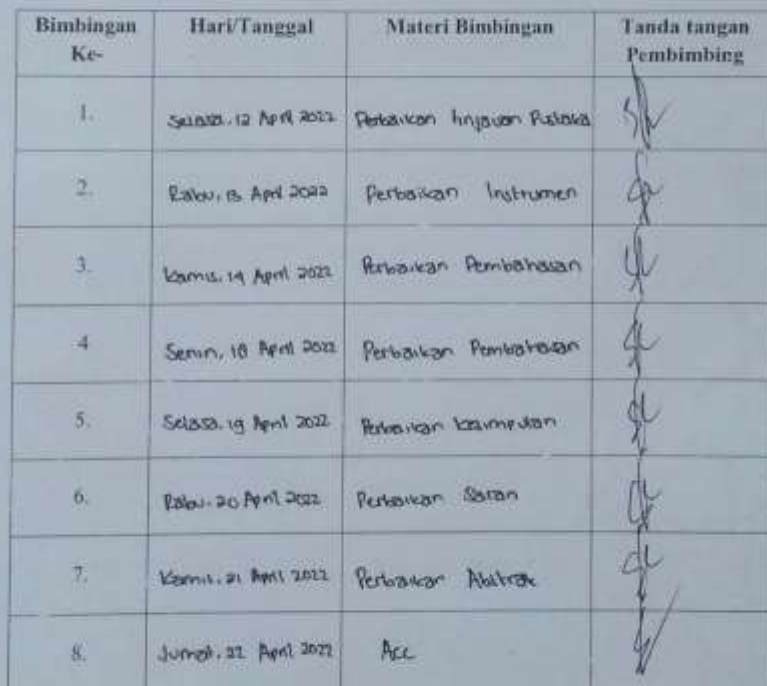 Bimbingan Ke- Hari/Tanggal Materi Bimbingan Tanda tangan Pembimbing
1. Selasa, 12 April 2022 Perbaikan Tinjauan Pustaka
2. Rabu, 13 April 2022 Perbaikan Instrumen
3. Kamis, 14 April 2022 Perbaikan Pembahasan
4 Senin, 18 April 2022 Perbaikan Pembahasan
5. Selasa, 19 April 2022 Perbaikan kesimpulan
6. Rabu, 20 April 2022 Perbaikan Saran
7. Kamis, 21 April 2022 Perbaikan Abstrak
8. Jumat, 22 April 2022 Acc